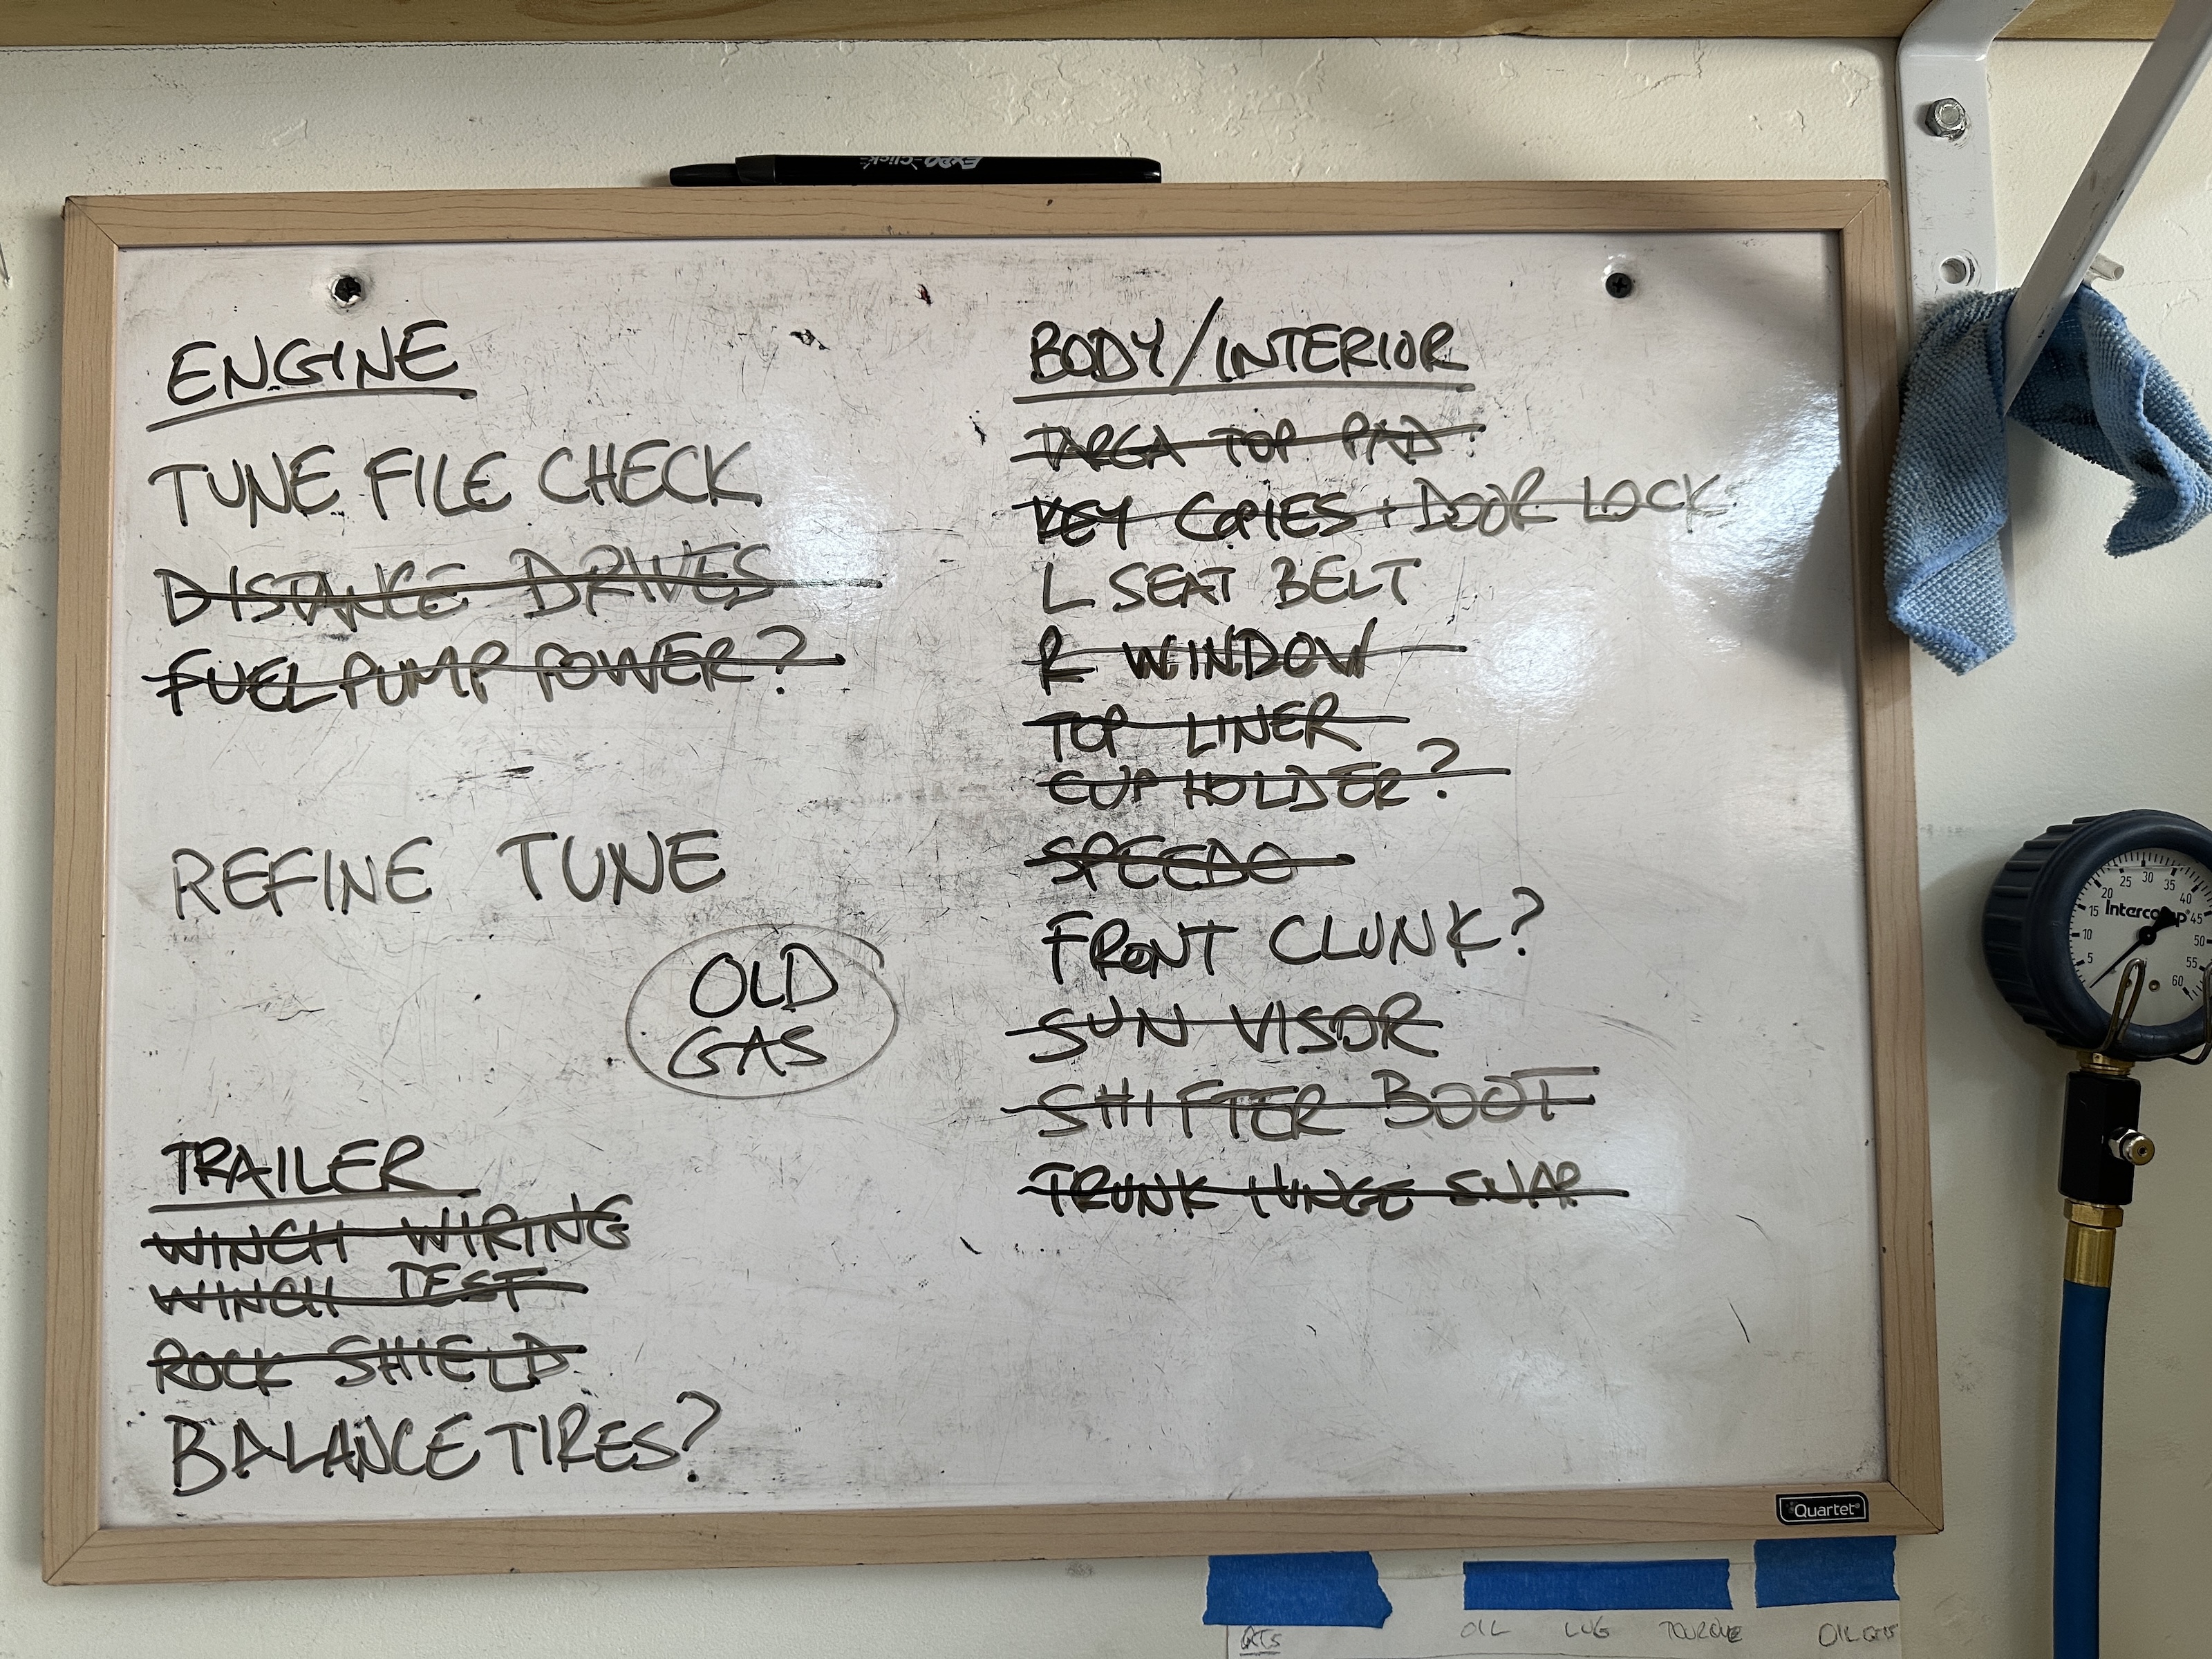 Expo Click
ENGINE
TUNE FILE CHECK
DISTANCE DRIVES
FUEL PUMP POWER?
REFINE TUNE
OLD
GAS
TRAILER
WINCH WIRING
WINCH TEST
ROCK SHIELD
BALANCE TIRES?
BODY/INTERIOR
TARGA TOP PAD
KEY COPIES + DOOR LOCK
L SEAT BELT
R WINDOW
TOP LINER
CUP HOLDER?
SPEEDO
FRONT CLUNK?
SUN VISOR
SHIFTER BOOT
TRUNK HINGE SWAP
Quartet
5 10 15 20 25 30 35 40 45 50 55 60
Intercomp
QTS OIL LUG TORQUE OIL